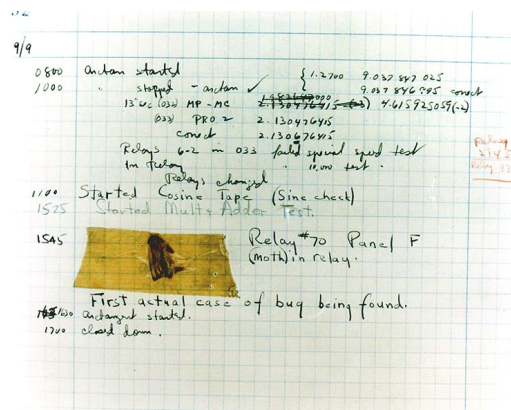 9/9
0800 Antan started { 1.2700 9.037 847 025
1000 " stopped - antan ✓ 9.037 846 995 correct
13"uc (032) MP - MC 2.130476415 4.615925059(-2)
(033) PRO 2 2.130476415
correct 2.130676415
Relays 6-2 in 033 failed special speed test
in Relay " 10,000 test .
Relays changed
1100 Started Cosine Tape (Sine check)
1525 Started Mult + Adder Test.
1545 Relay #70 Panel F
(moth) in relay.
First actual case of bug being found.
1630 antangent started.
1700 closed down.
Relay